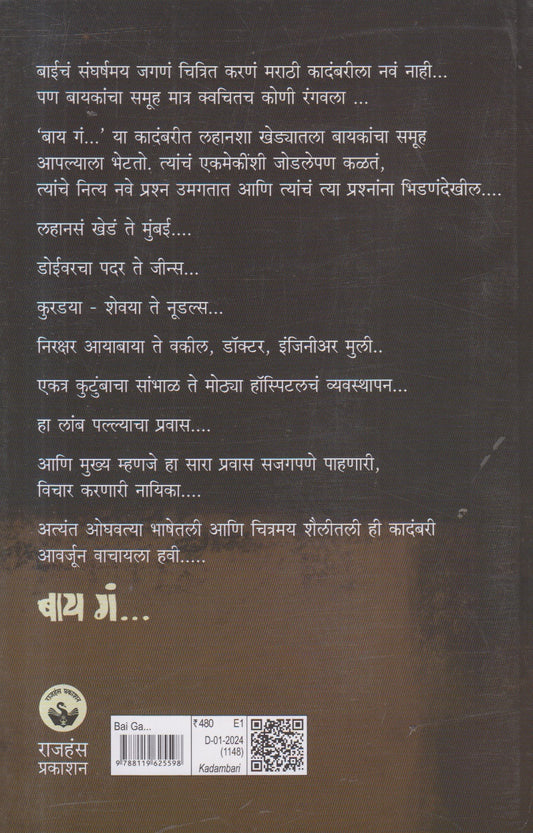 बाईचं संघर्षमय जगणं चित्रित करणं मराठी कादंबरीला नवं नाही...
पण बायकांचा समूह मात्र क्वचितच कोणी रंगवला ...
‘बाय गं...’ या कादंबरीत लहानशा खेड्यातला बायकांचा समूह
आपल्याला भेटतो. त्यांचं एकमेकींशी जोडलेपण कळतं,
त्यांचे नित्य नवे प्रश्न उमगतात आणि त्यांचं त्या प्रश्नांना भिडणंदेखील....
लहानसं खेडं ते मुंबई....
डोईवरचा पदर ते जीन्स...
कुरडया - शेवया ते नूडल्स...
निरक्षर आयाबाया ते वकील, डॉक्टर, इंजिनीअर मुली..
एकत्र कुटुंबाचा सांभाळ ते मोठ्या हॉस्पिटलचं व्यवस्थापन...
हा लांब पल्ल्याचा प्रवास....
आणि मुख्य म्हणजे हा सारा प्रवास सजगपणे पाहणारी,
विचार करणारी नायिका....
अत्यंत ओघवत्या भाषेतली आणि चित्रमय शैलीतली ही कादंबरी
आवर्जून वाचायला हवी.....
बाय गं...
राजहंस प्रकाशन
राजहंस
प्रकाशन
Bai Ga...
9 788119 625598
₹ 480 E1
D-01-2024
(1148)
Kadambari